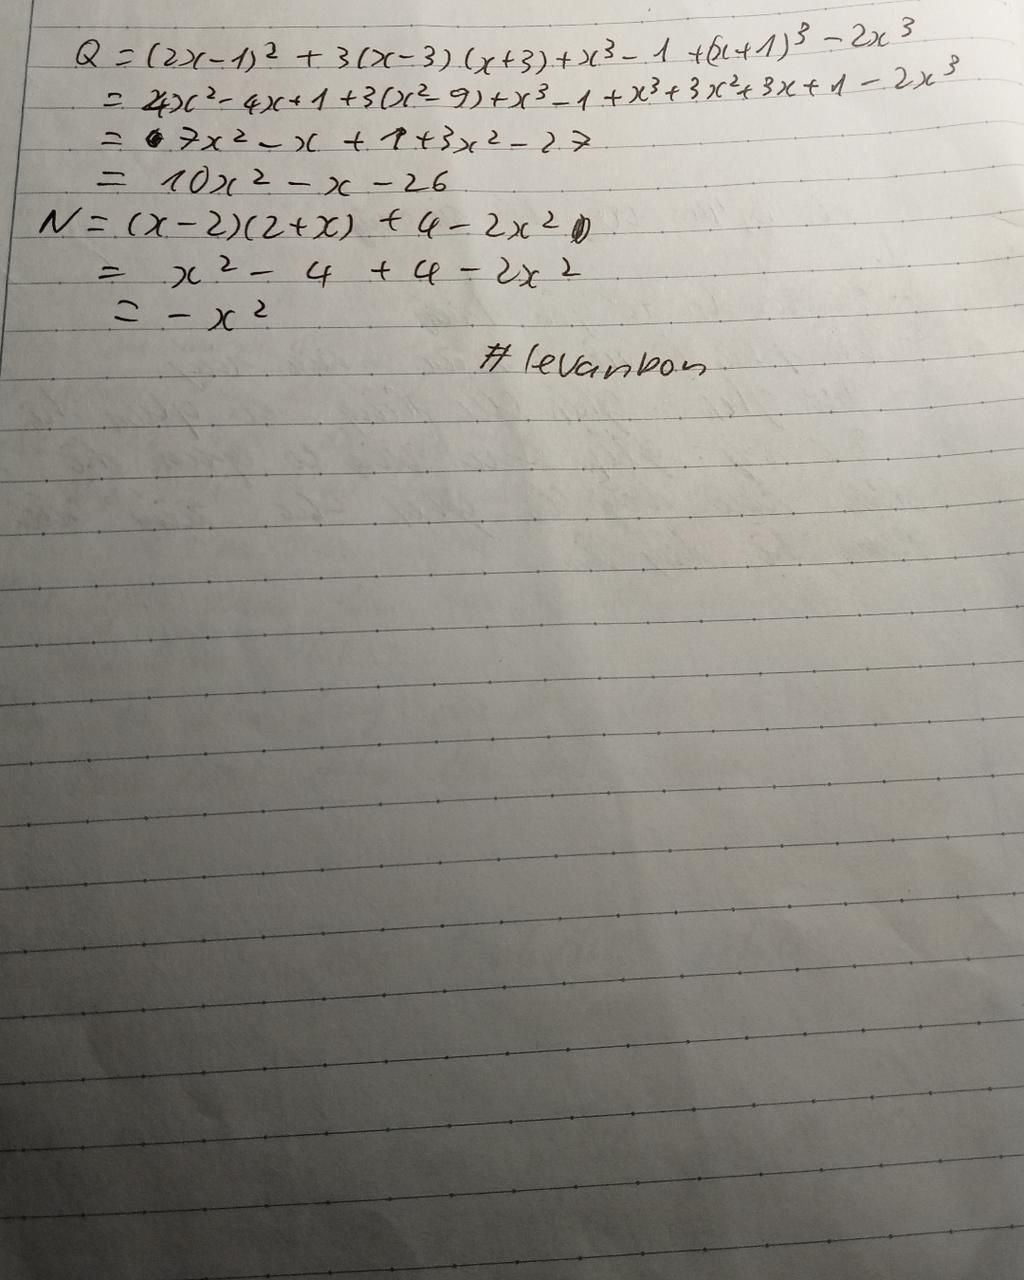 Q = (2x-1)² + 3(x-3)(x+3) + x³ - 1 + (x+1)³ - 2x³
= 4x² - 4x + 1 + 3(x² - 9) + x³ - 1 + x³ + 3x² + 3x + 1 - 2x³
= 7x² - x + 1 + 3x² - 27
= 10x² - x - 26
N = (x-2)(2+x) + 4 - 2x²
= x² - 4 + 4 - 2x²
= - x²
# levanbon